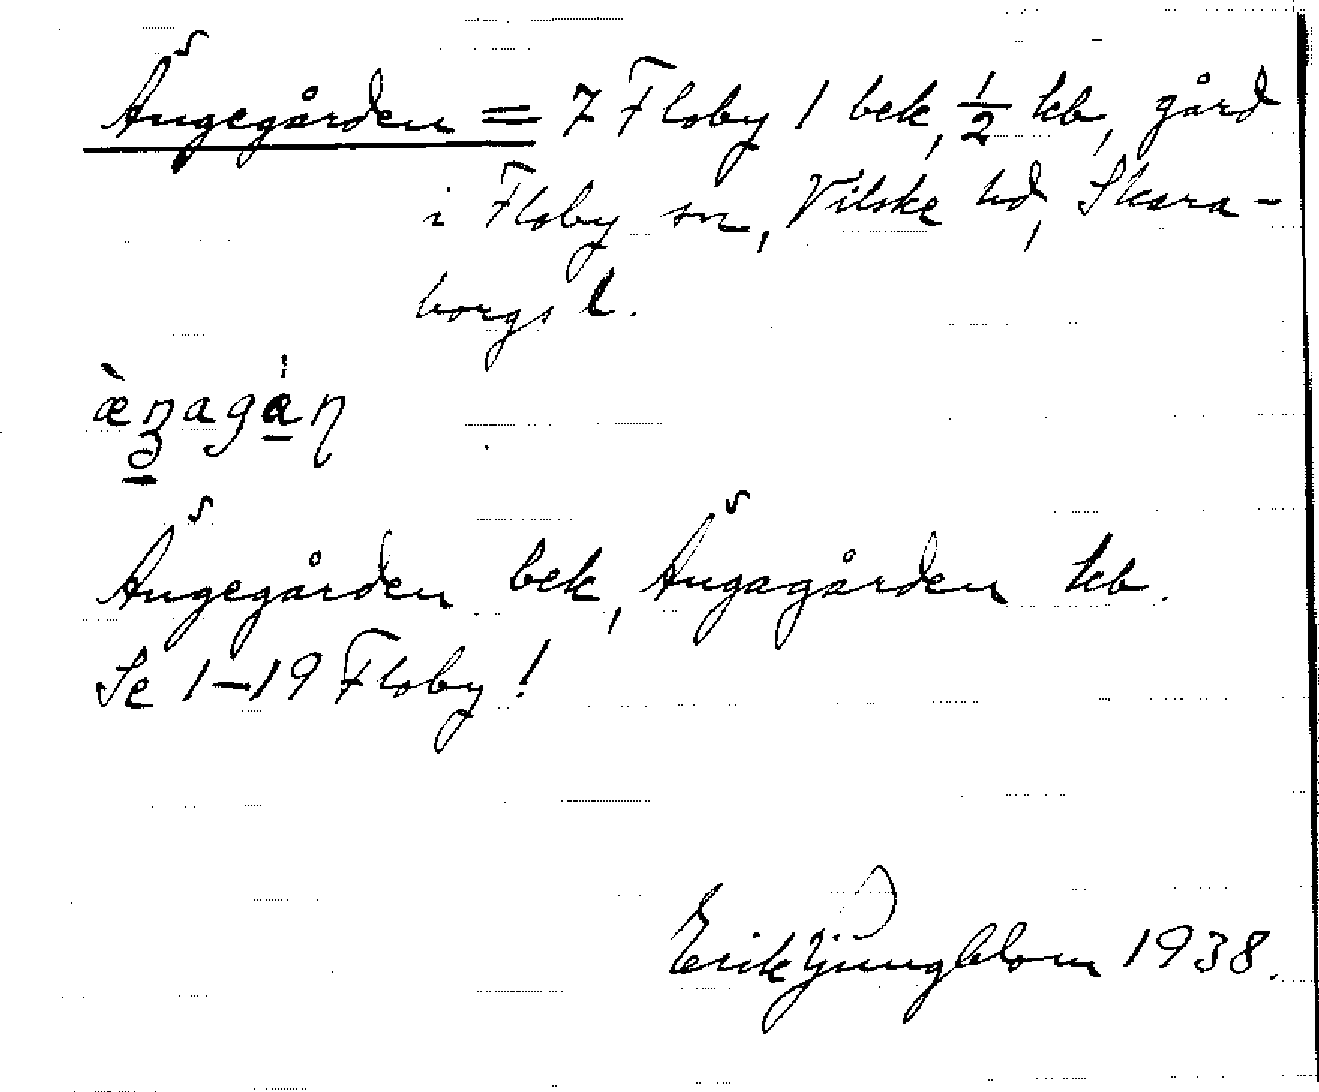 Ängegården = 7 Floby 1 bek, 1/2 kb, gård
i Floby sn, Vilske hd, Skara-
borgs l.
Ängegården bek, Ängagården kb.
Se 1–19 Floby!
Erik Ljungblom 1938.